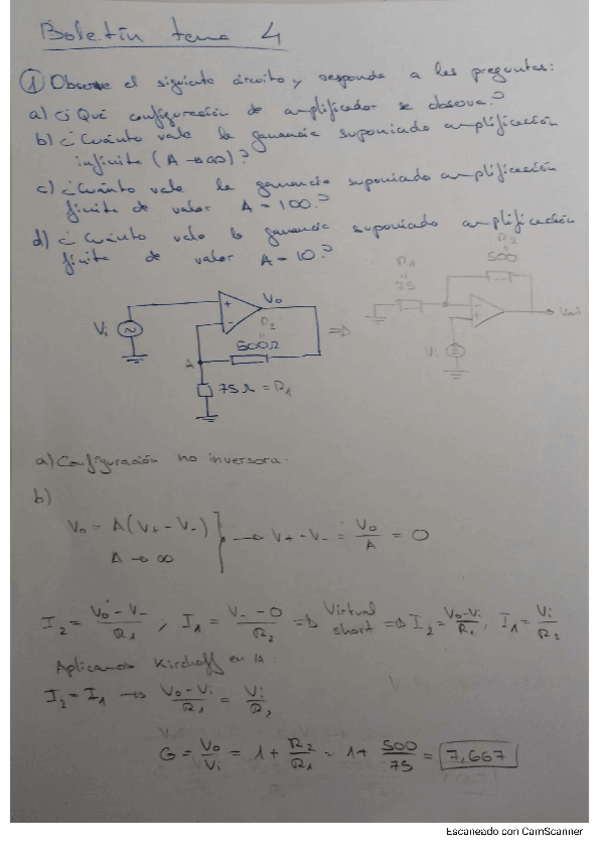 Boletín tema 4
① Observe el siguiente circuito y responda a las preguntas:
a) ¿Qué configuración de amplificador se observa?
b) ¿Cuánto vale la ganancia suponiendo amplificación
infinita (A→∞)?
c) ¿Cuánto vale la ganancia suponiendo amplificación
finita de valor A = 100?
d) ¿Cuánto vale la ganancia suponiendo amplificación
finita de valor A = 10?
R1 = 75
R2 = 500
Vout
Vi
+
-
Vo
Vi
R2 = 500Ω
A
75Ω = R1
⇒
a) Configuración no inversora.
b)
Vo = A(V+ - V-)
A → ∞
→ V+ - V- = Vo/A = 0
I2 = (Vo - V-)/R1 ; I1 = (V- - 0)/R2 ⇒ Virtual short ⇒ I2 = (Vo-Vi)/R1 ; I1 = Vi/R2
Aplicamos Kirchoff en A:
I2 = I1 → (Vo-Vi)/R1 = Vi/R2
G = Vo/Vi = 1 + R2/R1 = 1 + 500/75 = 7,667
Escaneado con CamScanner